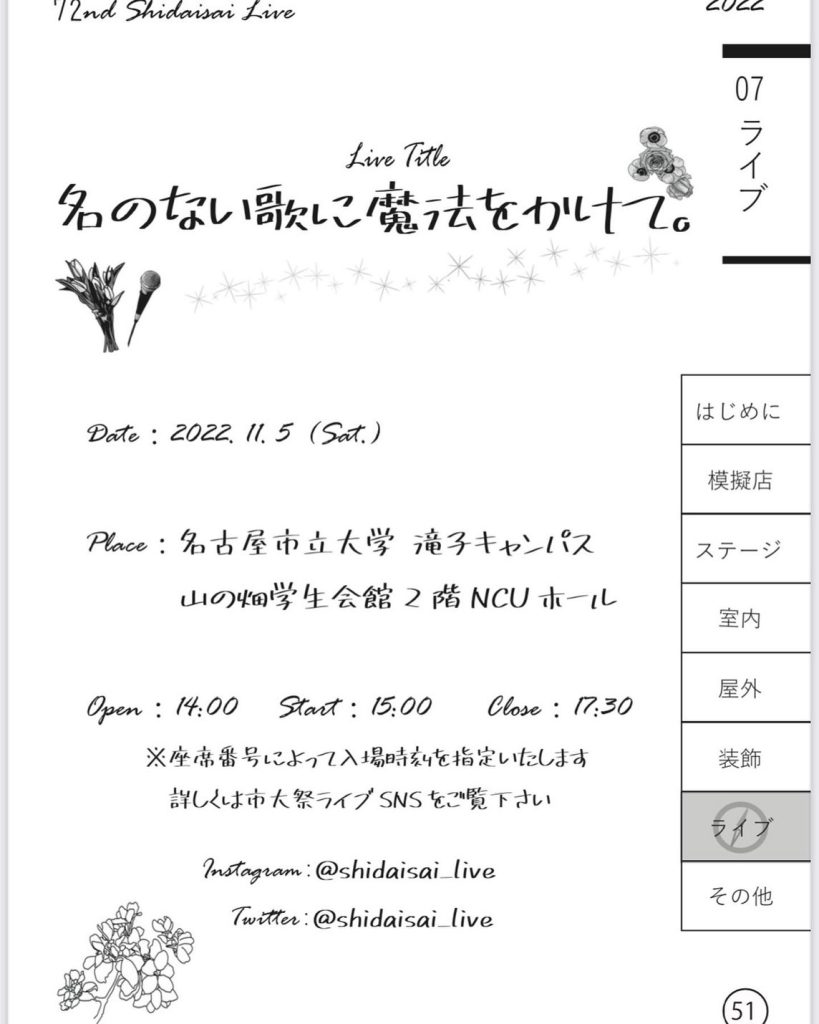 72nd Shidaisai Live
2022
07 ライブ
Live Title
名のない歌に魔法をかけて。
Date : 2022. 11. 5 (Sat.)
Place : 名古屋市立大学 滝子キャンパス
山の畑学生会館 2 階 NCU ホール
Open : 14:00 Start : 15:00 Close : 17:30
※座席番号によって入場時刻を指定いたします
詳しくは市大祭ライブ SNS をご覧下さい
Instagram : @shidaisai_live
Twitter : @shidaisai_live
はじめに
模擬店
ステージ
室内
屋外
装飾
ライブ
その他
51